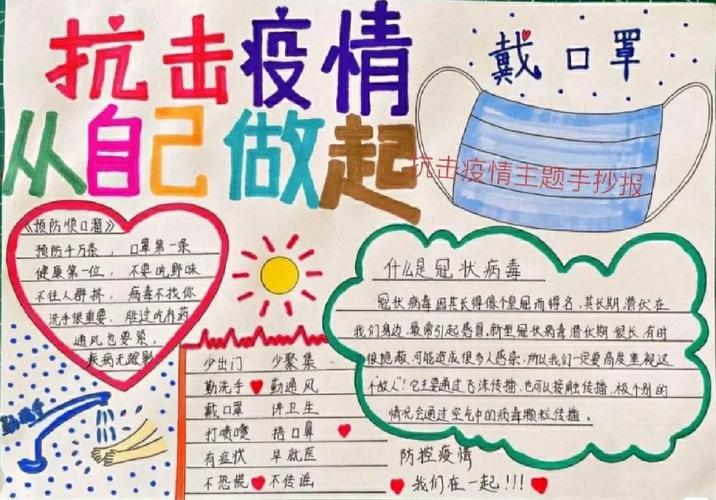 抗击疫情
从自己做起
戴口罩
抗击疫情主题手抄报
《预防顺口溜》
预防千万条，口罩第一条
健康第一位，不要吃野味
不往人群挤，病毒不找你
洗手很重要，胜过吃有药
通风也要紧，
疾病无踪影
勤洗手
少出门 少聚集
勤洗手 勤通风
戴口罩 讲卫生
打喷嚏 捂口鼻
有症状 早就医
不恐慌 不传谣
什么是冠状病毒
冠状病毒因其长得像个皇冠而得名，其长期潜伏在
我们身边，最常引起感冒，新型冠状病毒潜伏期很长，有时
很隐蔽，可能造成很多人感染，所以我们一定要高度重视这
个"敌人"！它主要通过飞沫传播，也可以接触传播，极个别的
情况会通过空气中的病毒颗粒传播。
防控疫情
我们在一起!!!